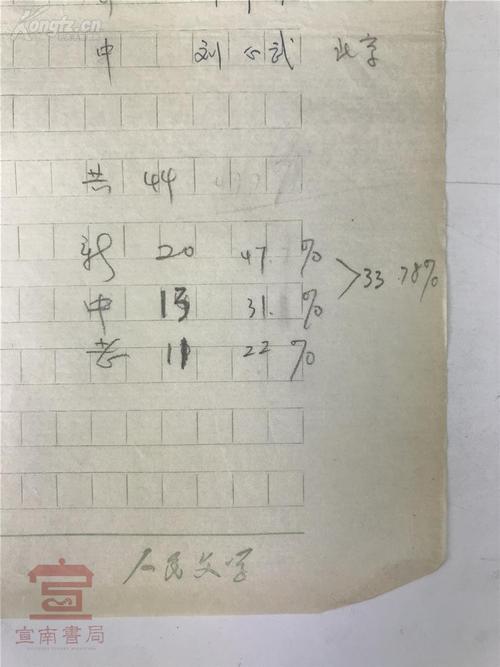 Kongfz.cn
中 刘 武 北京
共 44
新 20 47. %
中 13 31. %
老 11 22 %
>33 .78%
人民文学
宣南書局